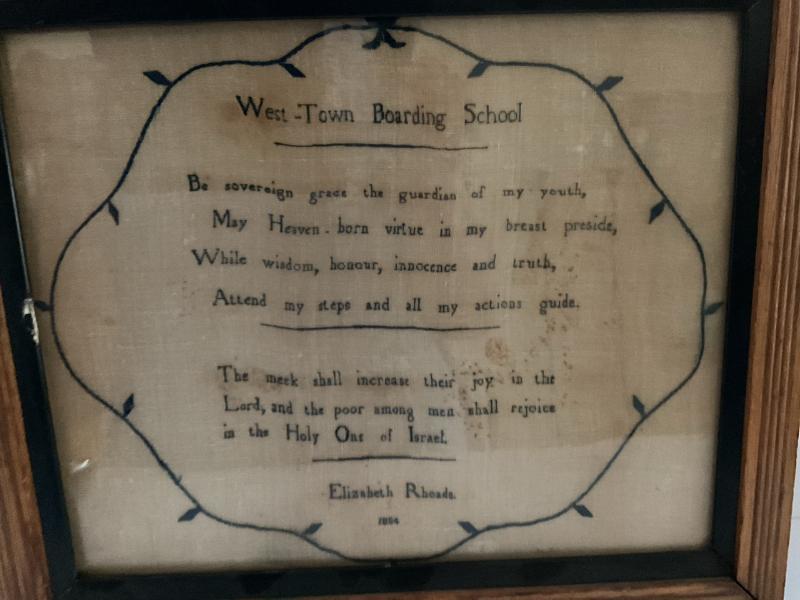 West-Town Boarding School
Be sovereign grace the guardian of my youth,
May Heaven-born virtue in my breast preside,
While wisdom, honour, innocence and truth,
Attend my steps and all my actions guide.
The meek shall increase their joy in the
Lord, and the poor among men shall rejoice
in the Holy One of Israel.
Elizabeth Rhoads.